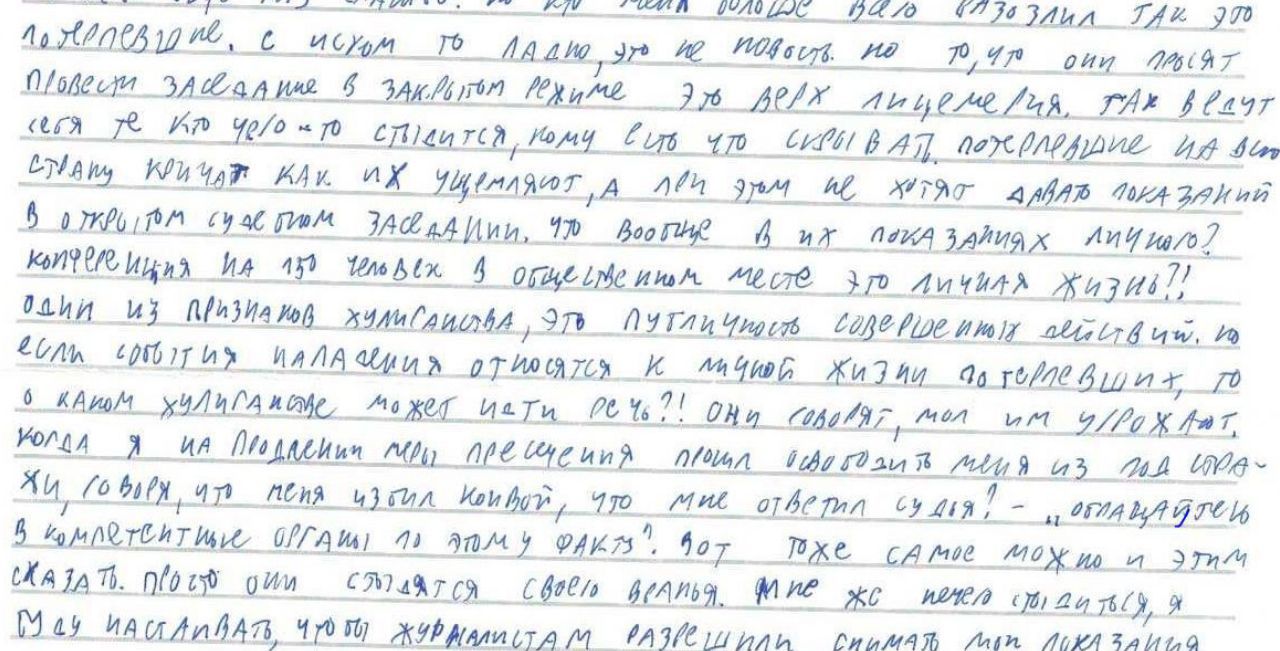 но кто меня больше всего разозлил так это
потерпевшие. с иском то ладно, это не новость. но то, что они просят
провести заседание в закрытом режиме это верх лицемерия. так ведут
себя те кто чего-то стыдится, кому есть что скрывать. потерпевшие на всю
страну кричат как их ущемляют, а при этом не хотят давать показаний
в открытом судебном заседании. что вообще в их показаниях личного?
конференция на 150 человек в общественном месте это личная жизнь?!
один из признаков хулиганства, это публичность совершенных действий. но
если события нападения относятся к личной жизни потерпевших, то
о каком хулиганстве может идти речь?! они говорят, мол им угрожают.
когда я на продлении меры пресечения просил освободить меня из под стра-
жи, говоря, что меня избил конвой, что мне ответил судья? - „обращайтесь
в компетентные органы по этому факту". вот тоже самое можно и этим
сказать. просто они стыдятся своего вранья. мне же нечего стыдиться, я
буду настаивать, чтобы журналистам разрешили снимать мои показания